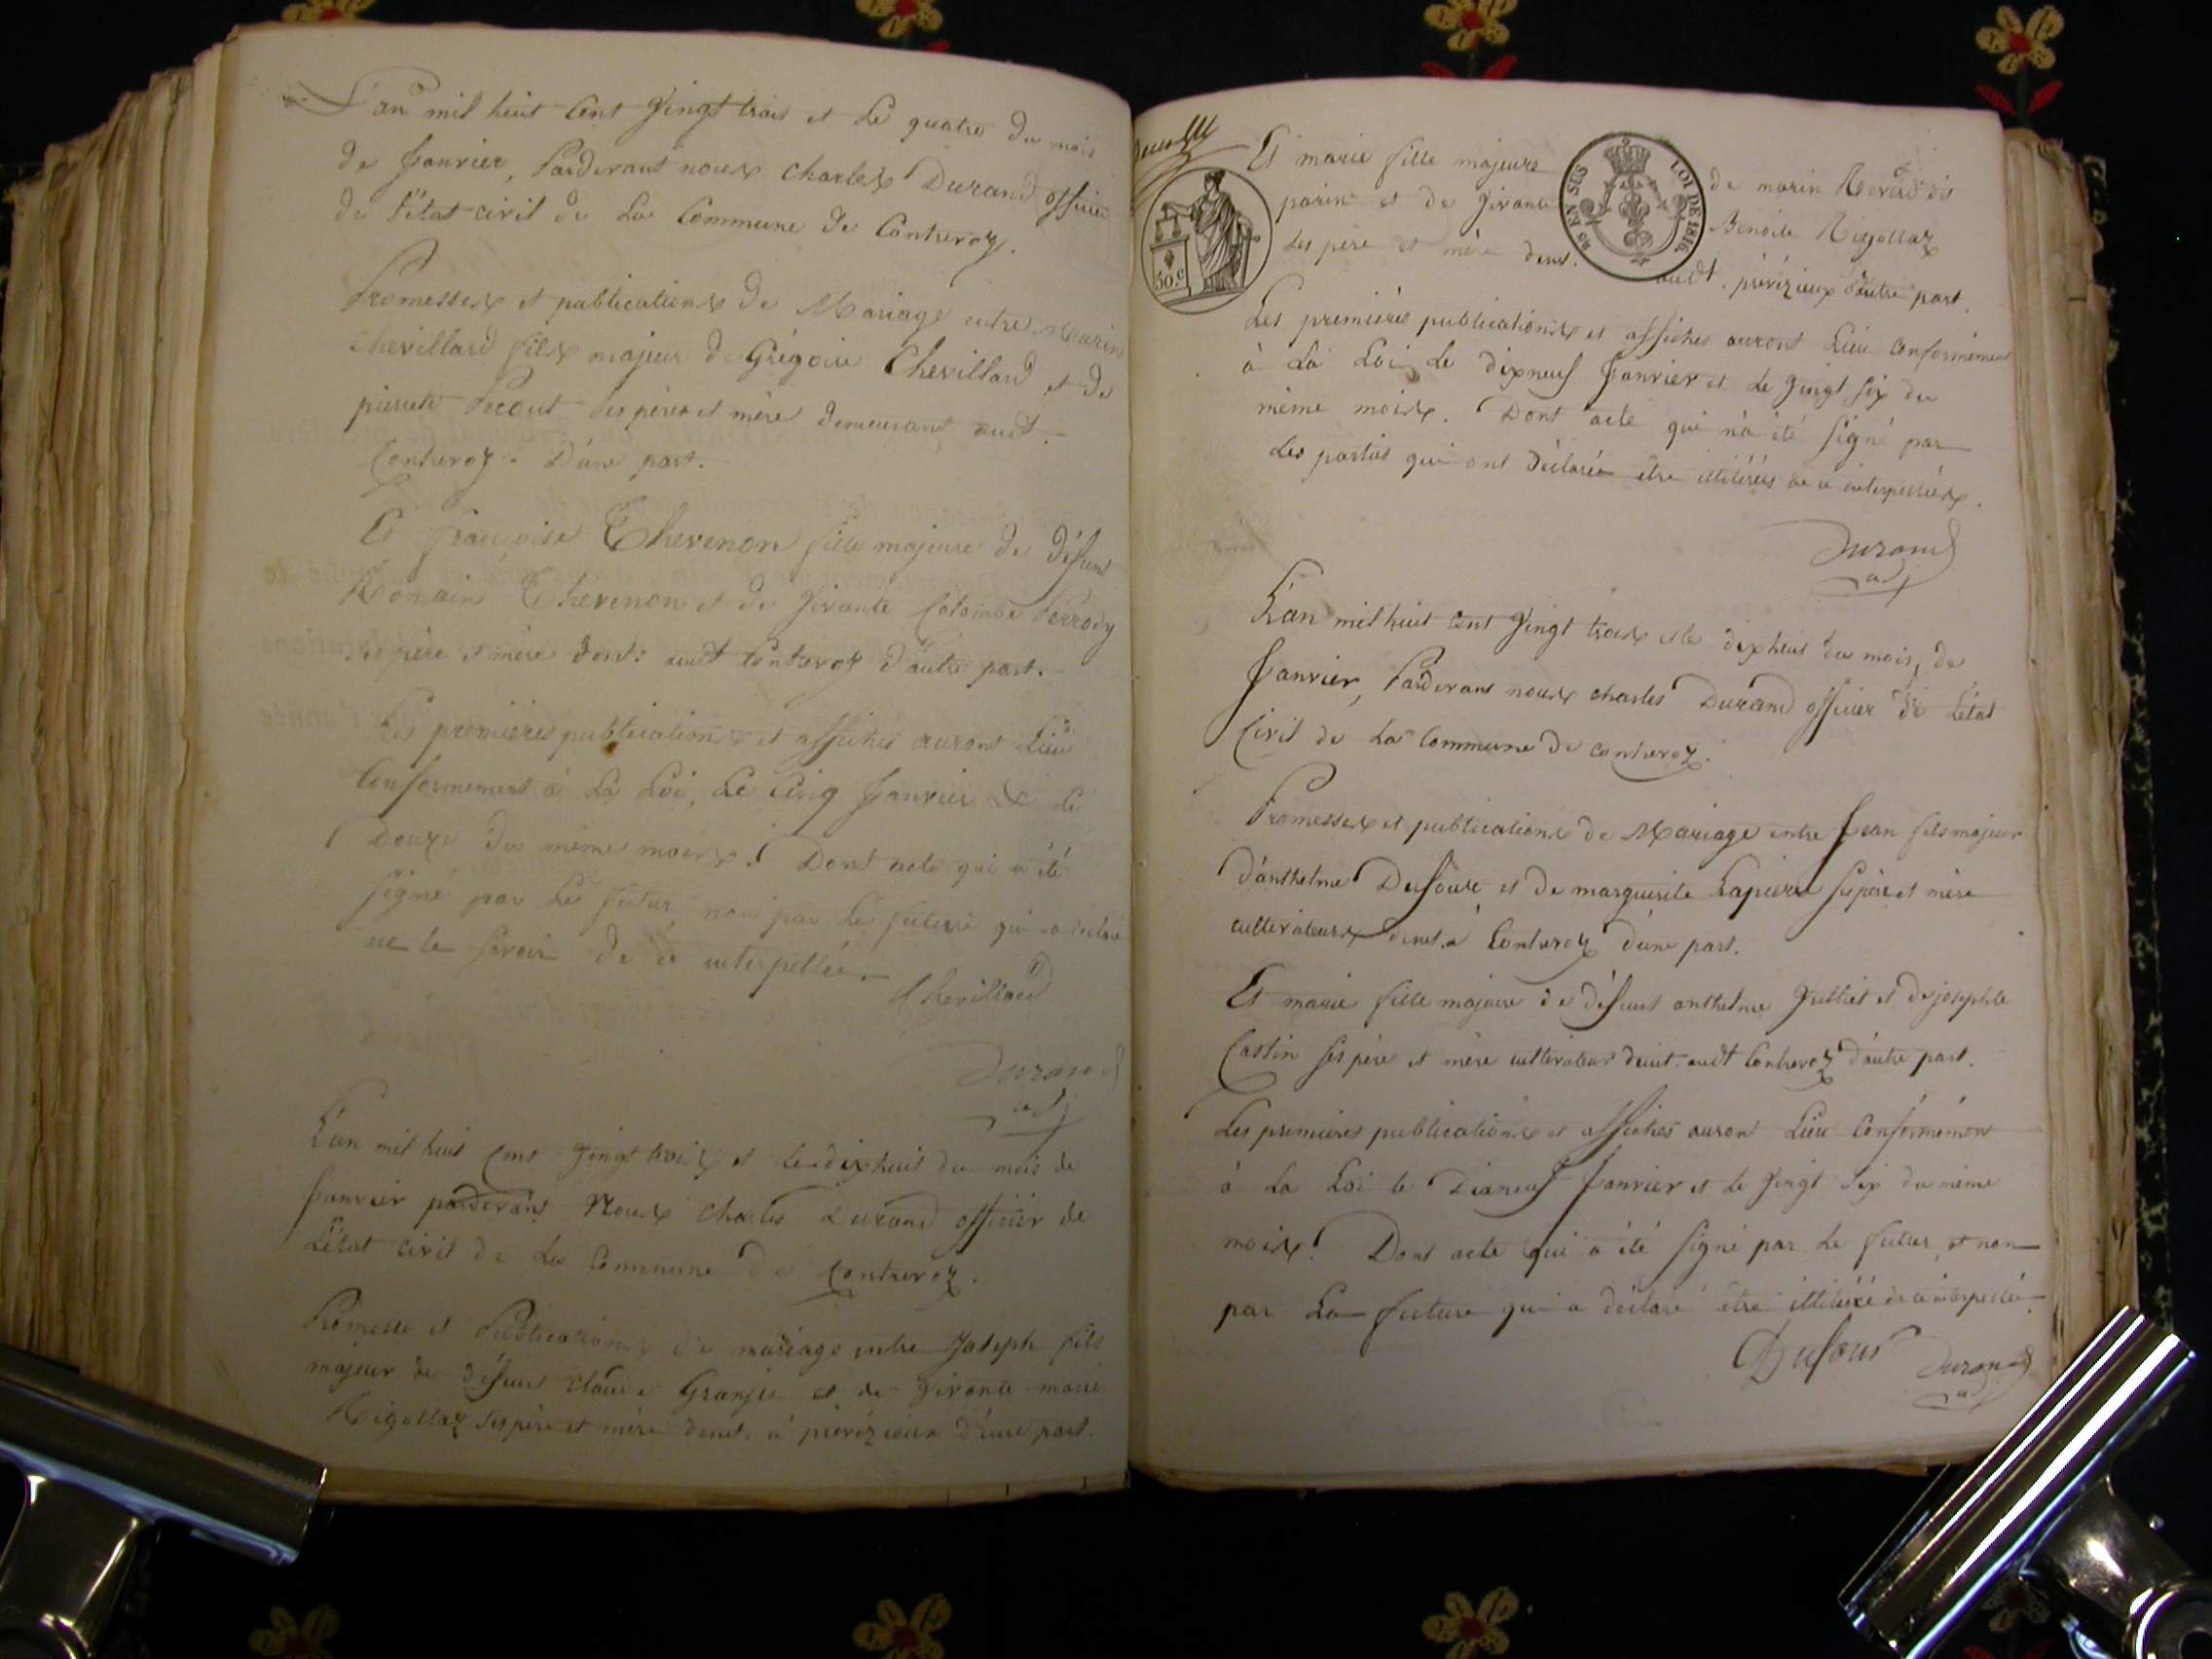 L'an mil huit Cent Vingt trois et Le quatre du mois
de Janvier, Pardevant nous Charles Durand officier
de l'état civil de La Commune de Contrevoz.
Promesses et publications de Mariage entre Marin
Chevillard fils majeur de Grégoire Chevillard et de
pierrette Pecout ses père et mère demeurant audt.
Contrevoz. D'une part.
Et françoise Thevenon fille majeure de défunt
Romain Thevenon et de Vivante Colombe Perrody
ses père et mère demt: audt Contrevoz d'autre part.
Les premières publications et affiches auront Lieu
Conformement à La Loi, Le Cinq Janvier & le
Douze du même mois. Dont acte qui a été
signé par Le futur, non par La future qui a déclaré
ne le savoir de ce interpellée.
Chevillard
Durand
adj
L'an mil huit Cent Vingt trois et Le dixhuit du mois de
Janvier pardevant Nous Charles Durand officier de
L'état civil de La Commune de Contrevoz.
Promesse et Publications de mariage entre Joseph fils
majeur de défunt claude Granjie et de Vivante marie
Rigollaz ses père et mère demt. à prévézieux d'une part.
Et marie fille majeure de marin Reverd dit
parin et de Vivante Benoite Rigollaz
ses père et mère demt. audt. prévizieux d'autre part.
50.c
25 EN SUS LOI DE 1816.
Les premières publications et affiches auront Lieu Conformément
à La Loi, Le dixneuf Janvier et Le Vingt six du
même mois. Dont acte qui n'a été signé par
Les parties qui ont Déclarées être illitérées de ce interpellées.
Durand
adj
L'an mil huit Cent Vingt trois et le dixhuit du mois, de
Janvier, Pardevant nous charles Durand officier de L'état
Civil de La Commune de contrevoz.
Promesses et publications de Mariage entre Jean fils majeur
d'anthelme Dufour, et de marguerite Lapierre ses père et mère
cultivateurs demt. à Contrevoz d'une part.
Et marie fille majeure de défunt anthelme Julliet et de josephte
Castin ses père et mère cultivateur demt. audt Contrevoz d'autre part.
Les premières publications et affiches auron Lieu Conformément
à La Loi le Dixneuf Janvier et le Vingt six du même
mois. Dont acte qui a été signé par Le futur, et non
par La future qui a déclaré être illitérée de ce interpellée.
Dufour Durand
adj